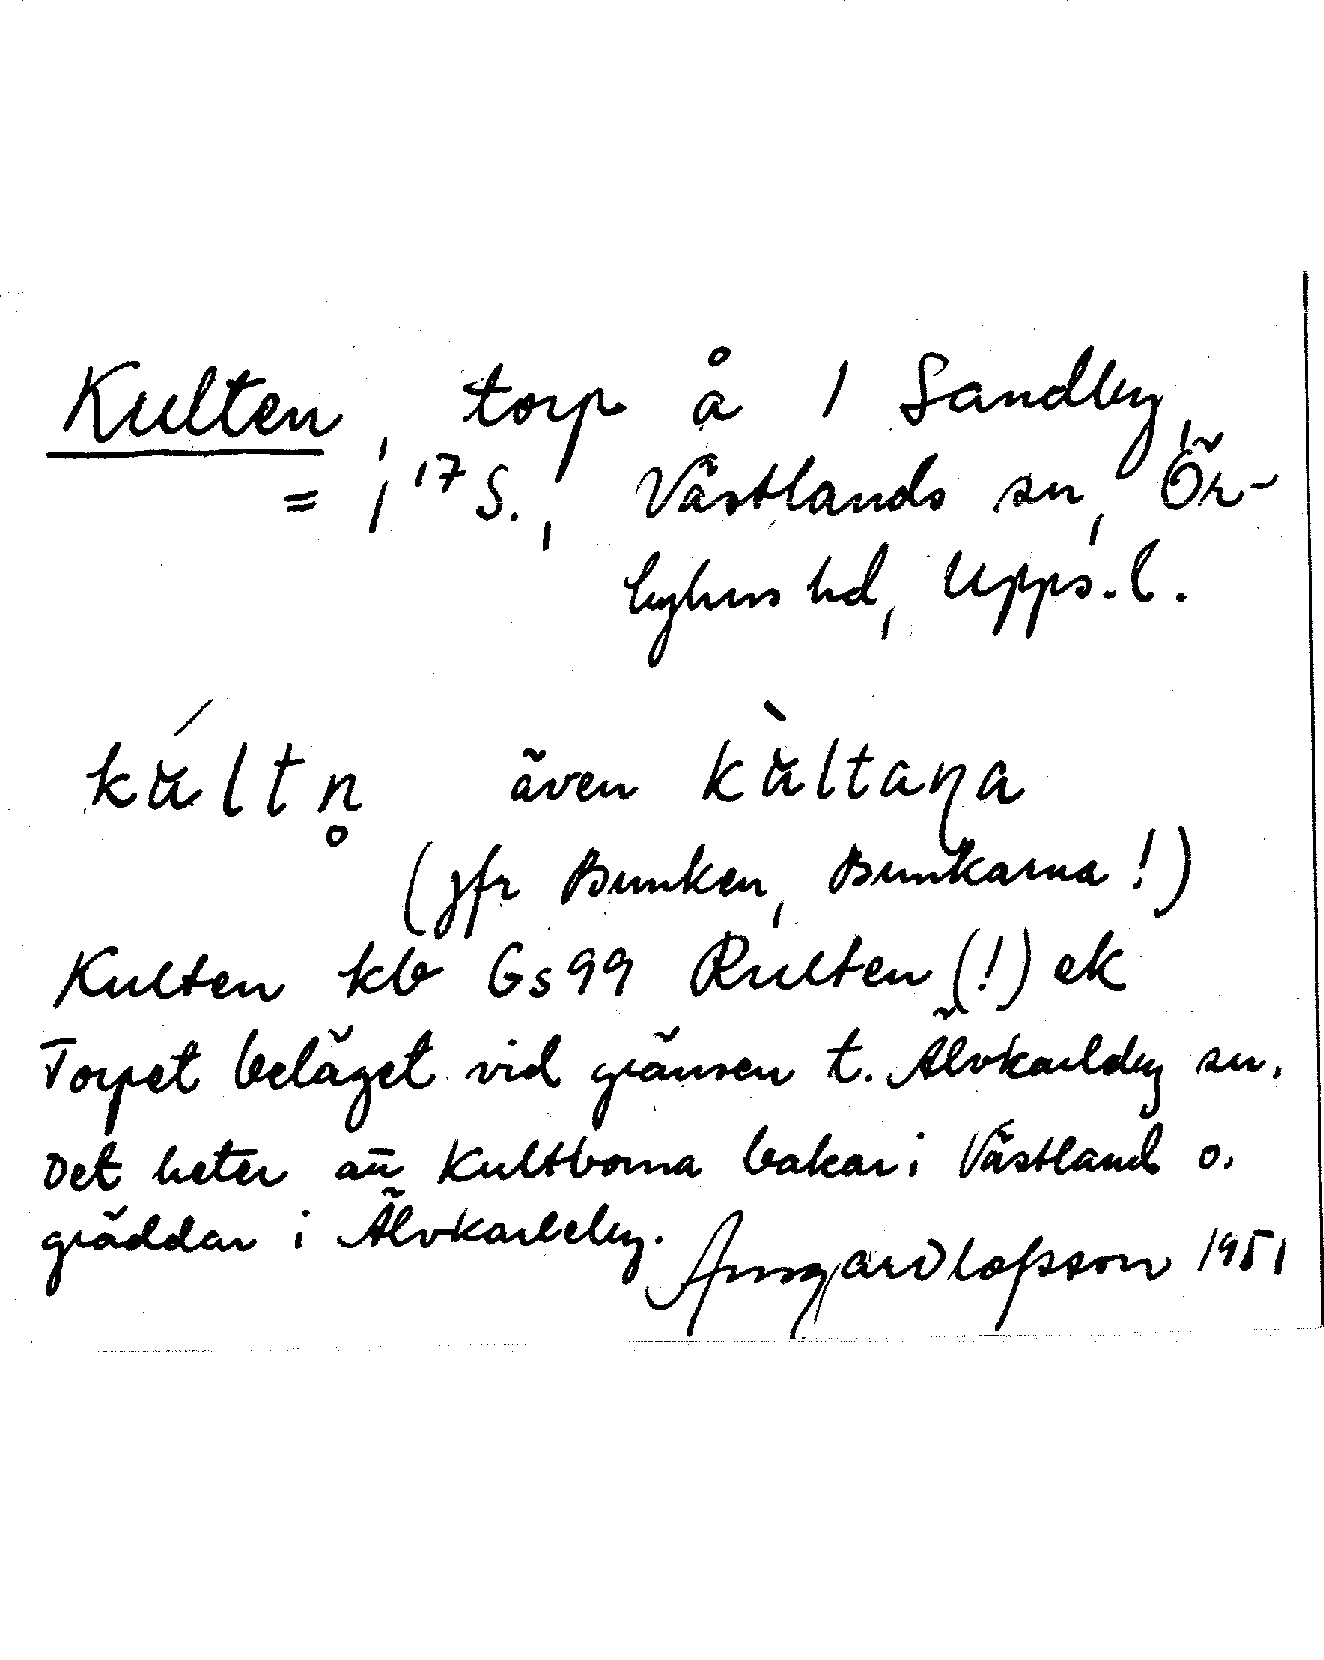 Kulten, torp å 1 Sandby,
= 1¹⁷ S., Västlands sn, Ör-
byhus hd, Upps. l.
kŭ́ltn̥ även kŭ̀ltaṇa
(jfr Bunken, Bunkarna!)
Kulten kb Gs 99 Rulten (!) ek
Torpet beläget vid gränsen t. Älvkarleby sn.
Det heter att Kultborna bakar i Västland o.
gräddar i Älvkarleby.
Olofsson 1951